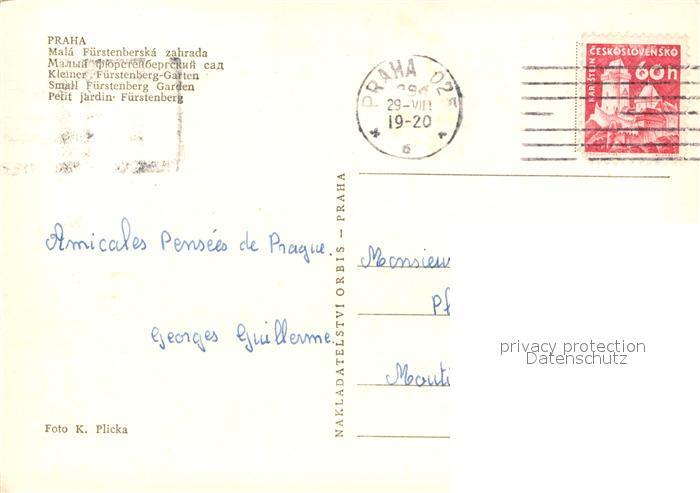 PRAHA
Malá Fürstenberská zahrada
Малый фюрстенбергский сад
Kleiner Fürstenberg-Garten
Small Fürstenberg Garden
Petit jardin Fürstenberg
PRAHA 025
29-VIII
19-20
6
ČESKOSLOVENSKO
KARLŠTEJN
60h
NAKLADATELSTVÍ ORBIS – PRAHA
Amicales Pensées de Prague.
Georges Guillerme.
Monsieur
privacy protection
Datenschutz
Foto K. Plicka